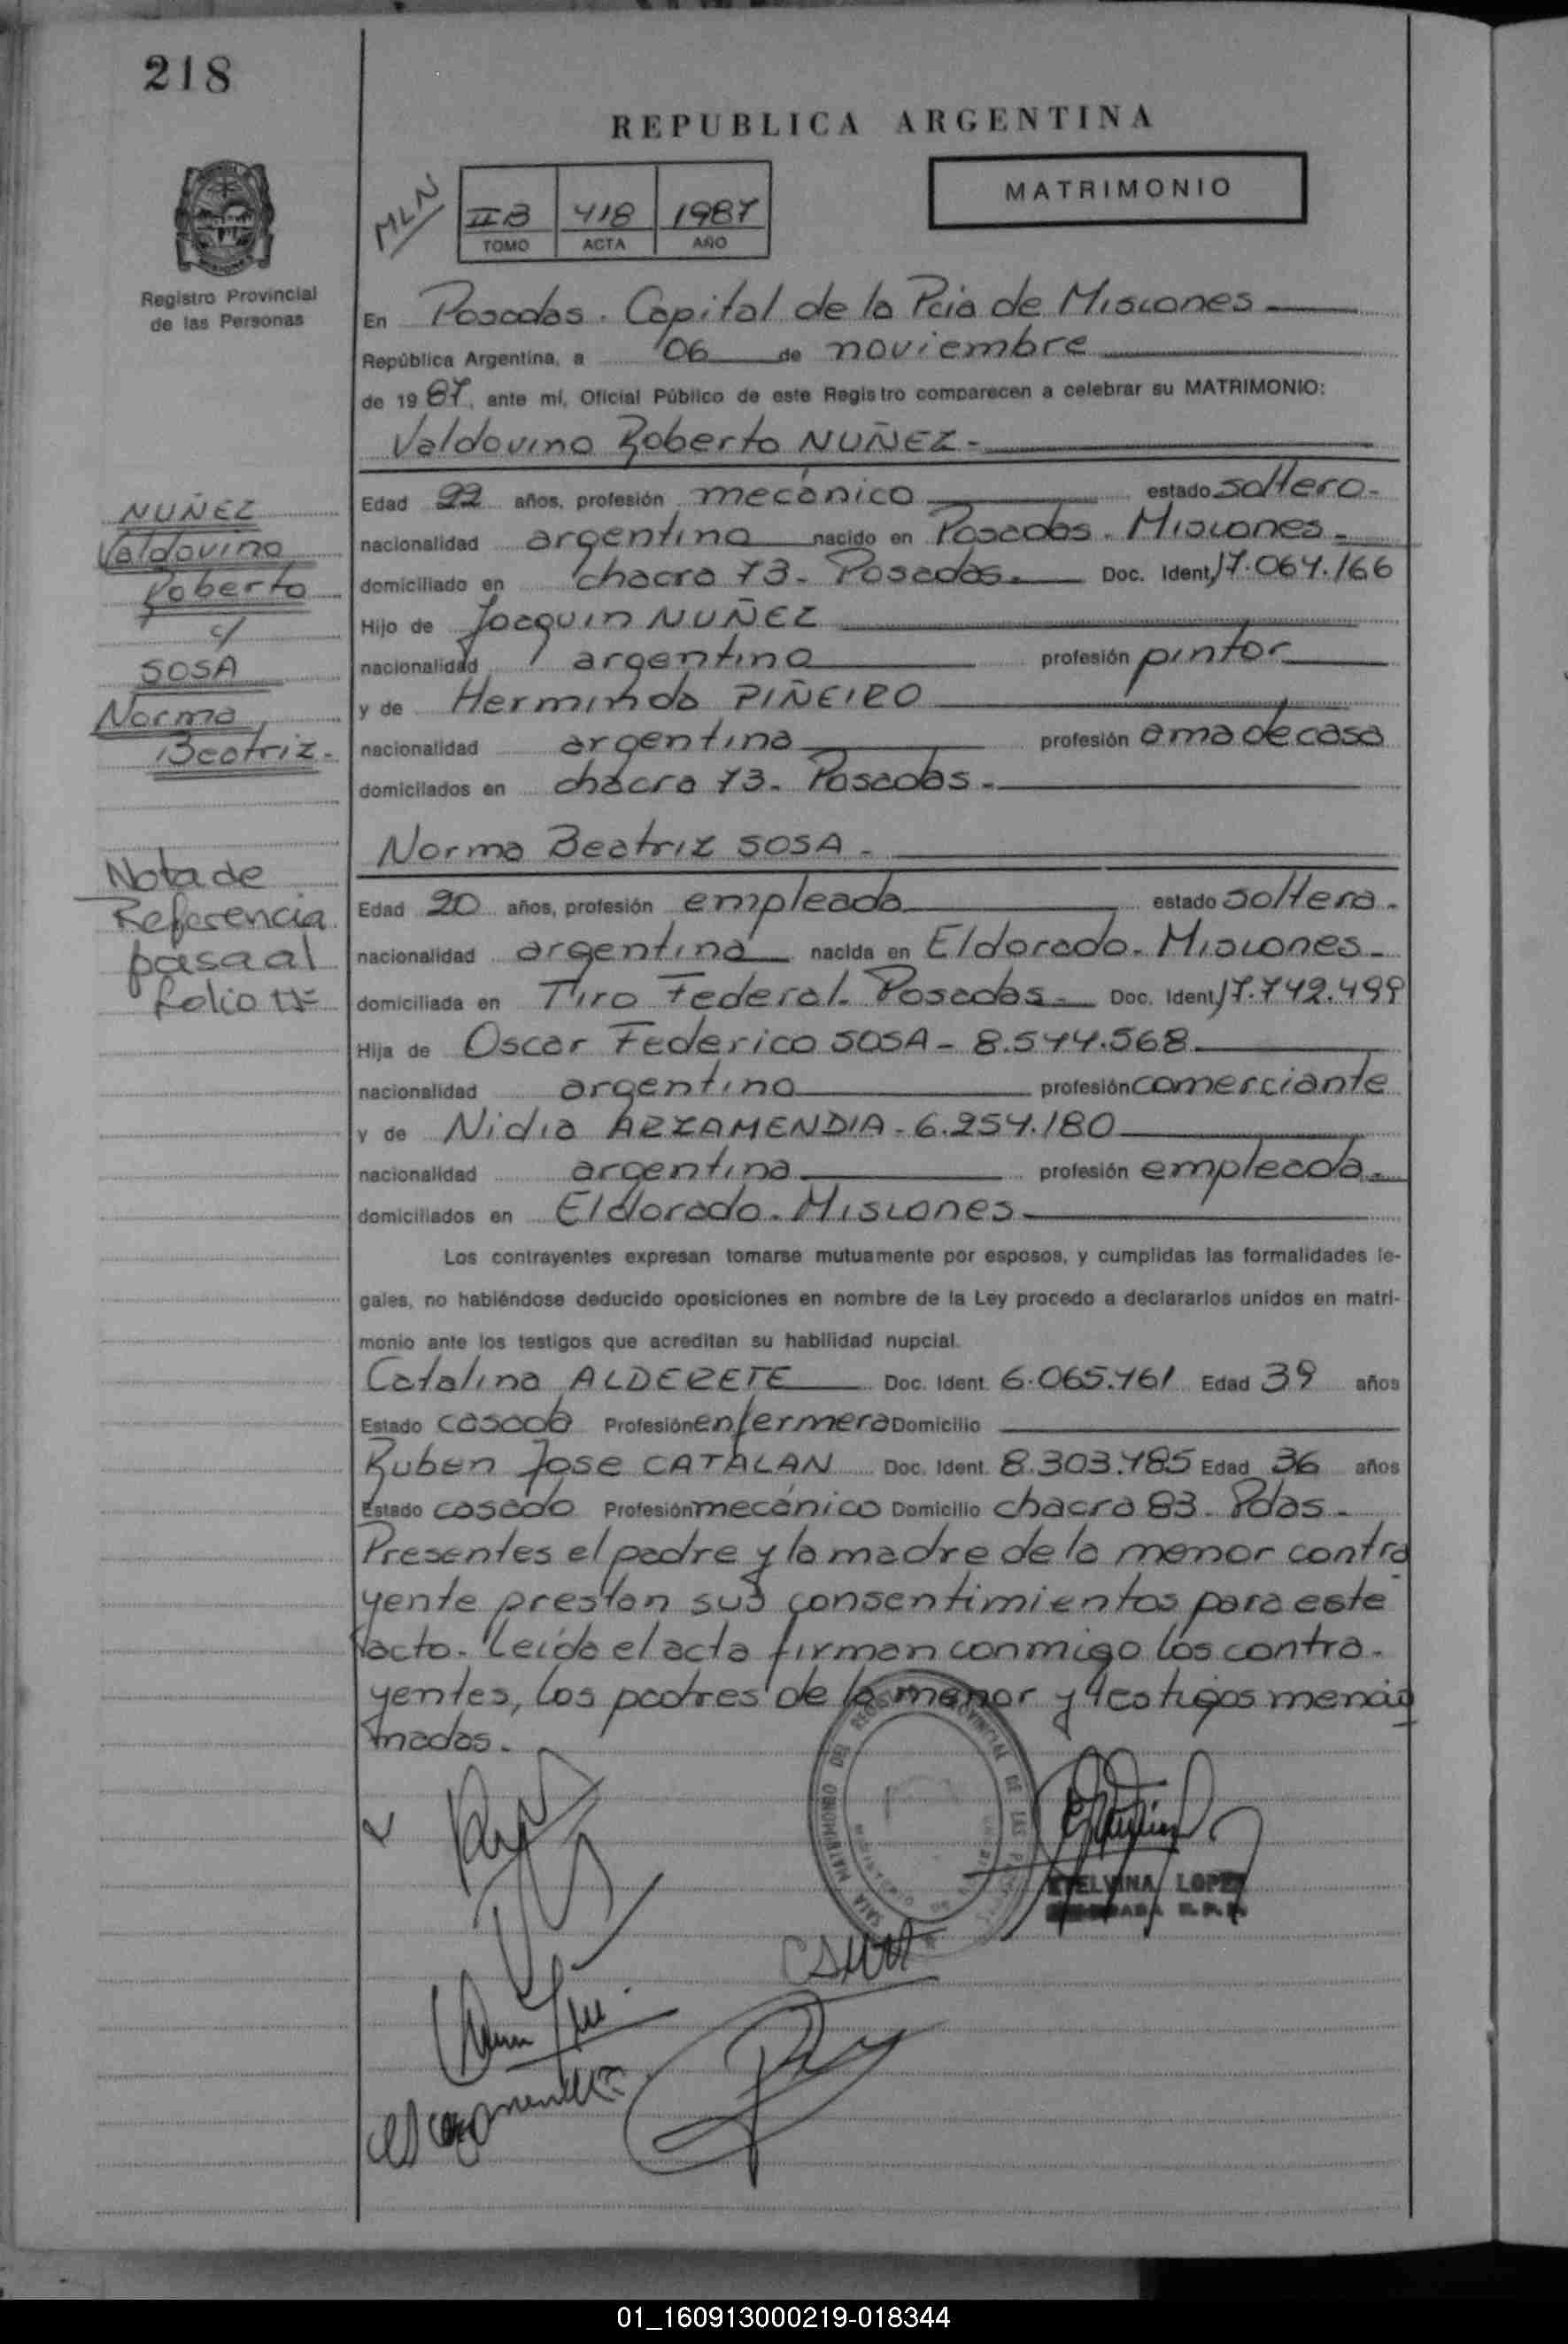 218
REPUBLICA ARGENTINA
MATRIMONIO
MLN
IIB 418 1987
TOMO ACTA AÑO
Registro Provincial
de las Personas
En Posadas. Capital de la Pcia de Misiones
República Argentina, a 06 de noviembre
de 1987, ante mí, Oficial Público de este Registro comparecen a celebrar su MATRIMONIO:
Valdovino Roberto NUÑEZ.-
Edad 22 años, profesión mecánico estado soltero.-
nacionalidad argentina nacido en Posadas. Misiones.-
domiciliado en chacra 73. Posadas. Doc. Ident. 17.064.166
Hijo de Joaquin NUÑEZ
nacionalidad argentina profesión pintor
y de Herminda PIÑEIRO
nacionalidad argentina profesión ama de casa
domicilados en chacra 73. Posadas.-
NUÑEZ
Valdovino
Roberto
c/
SOSA
Norma
Beatriz.-
Norma Beatriz SOSA.-
Edad 20 años, profesión empleada estado soltera.-
nacionalidad argentina nacida en Eldorado. Misiones.-
domiciliada en Tiro Federal. Posadas. Doc. Ident. 17.742.499
Hija de Oscar Federico SOSA - 8.544.568
nacionalidad argentino profesión comerciante
y de Nidia ARZAMENDIA - 6.254.180
nacionalidad argentina profesión empleada.-
domiciliados en Eldorado. Misiones
Nota de
Referencia
pasa al
folio Nº
Los contrayentes expresan tomarse mutuamente por esposos, y cumplidas las formalidades le-
gales, no habiéndose deducido oposiciones en nombre de la Ley procedo a declararlos unidos en matri-
monio ante los testigos que acreditan su habilidad nupcial.
Catalina ALDERETE Doc. Ident. 6.065.761 Edad 39 años
Estado casada Profesión enfermera Domicilio
Ruben Jose CATALAN Doc. Ident. 8.303.785 Edad 36 años
Estado casado Profesión mecánico Domicilio chacra 83. Pdas.-
Presentes el padre y la madre de la menor contra
yente prestan sus consentimientos para este
acto. Leída el acta firman conmigo los contra-
yentes, los padres de la menor y testigos mencio
nados.
SALA MATRIMONIO DEL REGISTRO PROVINCIAL DE LAS
ETELVINA LOPEZ
01_160913000219-018344